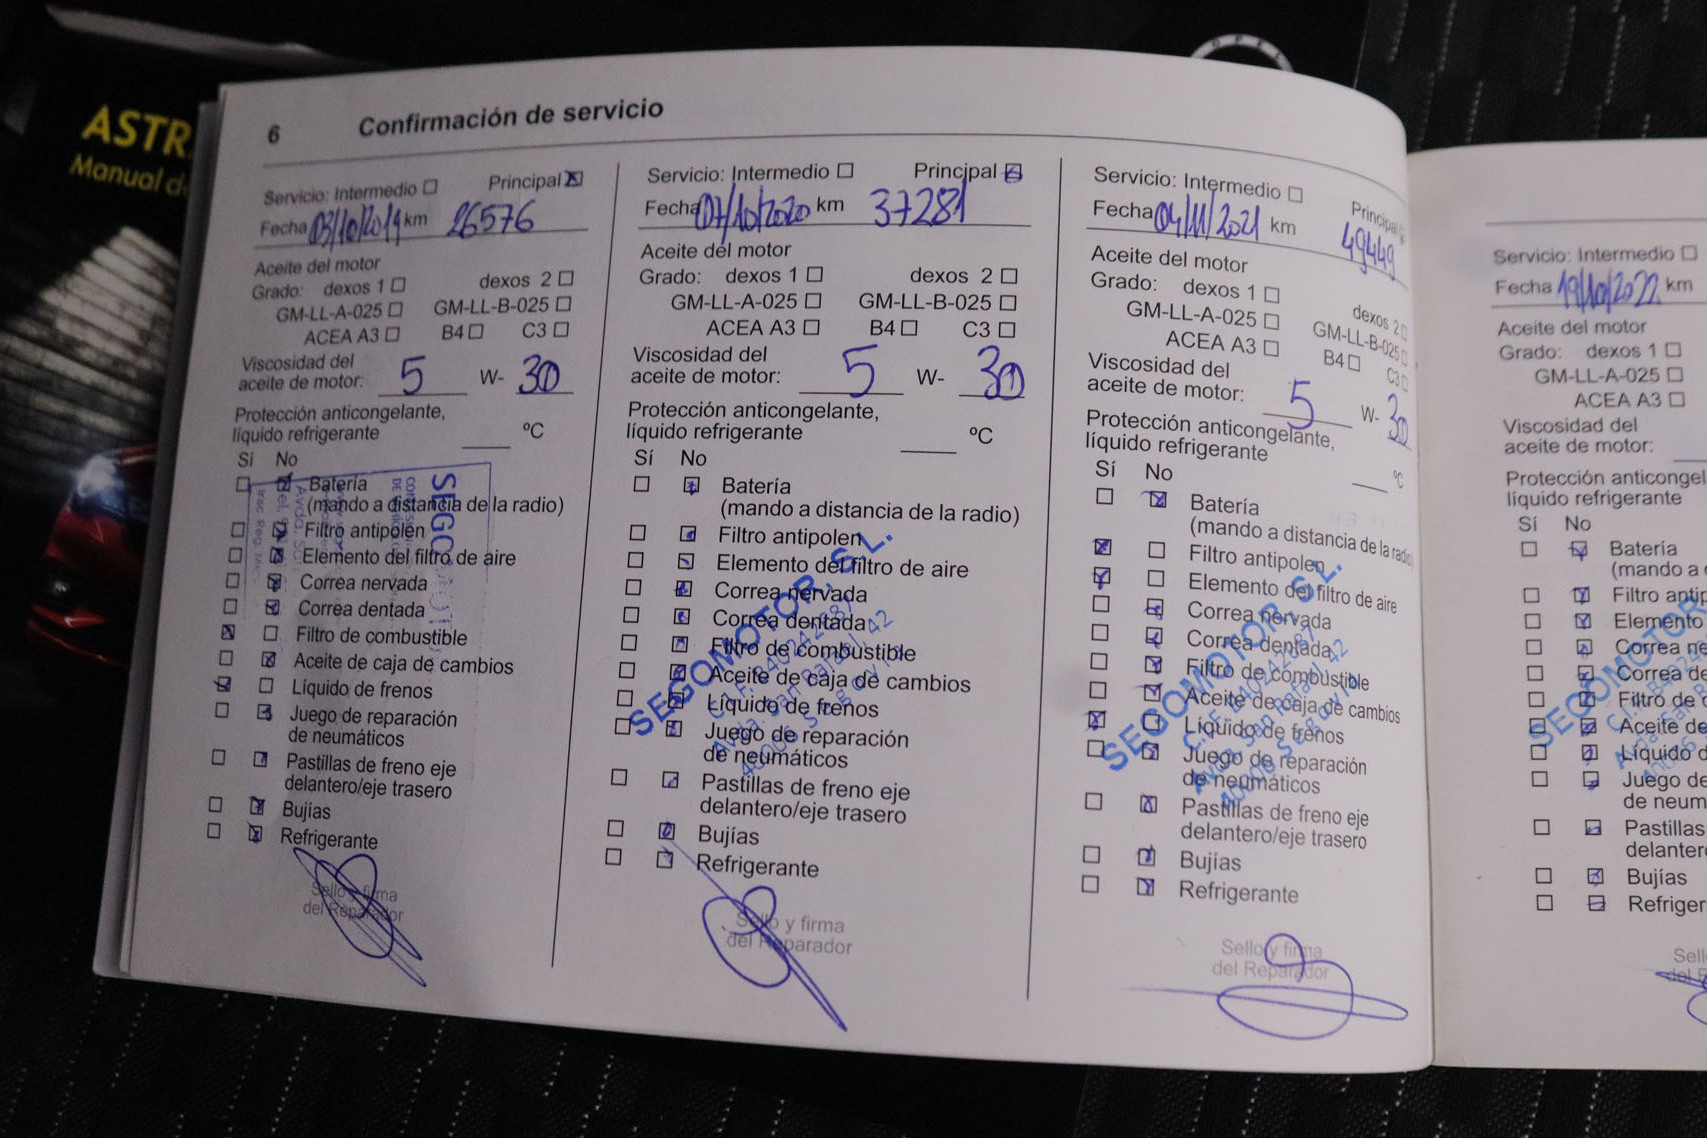 OPEL
ASTR
Manual d
6 Confirmación de servicio
Servicio: Intermedio ☐ Principal ☒
Fecha 03/10/2019 km 26576
Aceite del motor
Grado: dexos 1 ☐ dexos 2 ☐
GM-LL-A-025 ☐ GM-LL-B-025 ☐
ACEA A3 ☐ B4 ☐ C3 ☐
Viscosidad del
aceite de motor: 5 W- 30
Protección anticongelante,
líquido refrigerante ____ ºC
Sí No
☐ ☒ Batería
(mando a distancia de la radio)
☐ ☒ Filtro antipolen
☐ ☒ Elemento del filtro de aire
☐ ☒ Correa nervada
☐ ☒ Correa dentada
☒ ☐ Filtro de combustible
☐ ☒ Aceite de caja de cambios
☒ ☐ Líquido de frenos
☐ ☒ Juego de reparación
de neumáticos
☐ ☒ Pastillas de freno eje
delantero/eje trasero
☐ ☒ Bujías
☐ ☒ Refrigerante
Sello y firma
del Reparador
Servicio: Intermedio ☐ Principal ☒
Fecha 07/10/2020 km 37281
Aceite del motor
Grado: dexos 1 ☐ dexos 2 ☐
GM-LL-A-025 ☐ GM-LL-B-025 ☐
ACEA A3 ☐ B4 ☐ C3 ☐
Viscosidad del
aceite de motor: 5 W- 30
Protección anticongelante,
líquido refrigerante ____ ºC
Sí No
☐ ☒ Batería
(mando a distancia de la radio)
☐ ☒ Filtro antipolen
☐ ☒ Elemento del filtro de aire
☐ ☒ Correa nervada
☐ ☒ Correa dentada
☐ ☒ Filtro de combustible
☐ ☒ Aceite de caja de cambios
☐ ☒ Líquido de frenos
☐ ☒ Juego de reparación
de neumáticos
☐ ☒ Pastillas de freno eje
delantero/eje trasero
☐ ☒ Bujías
☐ ☒ Refrigerante
SEGOMOTOR, S.L.
C.I.F. B40242887
Avda. San Rafael, 42
40006 Segovia
Sello y firma
del Reparador
Servicio: Intermedio ☐ Principal ☒
Fecha 04/11/2021 km 49449
Aceite del motor
Grado: dexos 1 ☐ dexos 2 ☐
GM-LL-A-025 ☐ GM-LL-B-025 ☐
ACEA A3 ☐ B4 ☐ C3 ☐
Viscosidad del
aceite de motor: 5 W- 30
Protección anticongelante,
líquido refrigerante ____ ºC
Sí No
☐ ☒ Batería
(mando a distancia de la radio)
☒ ☐ Filtro antipolen
☒ ☐ Elemento del filtro de aire
☐ ☒ Correa nervada
☐ ☒ Correa dentada
☐ ☒ Filtro de combustible
☐ ☒ Aceite de caja de cambios
☒ ☐ Líquido de frenos
☐ ☒ Juego de reparación
de neumáticos
☐ ☒ Pastillas de freno eje
delantero/eje trasero
☐ ☒ Bujías
☐ ☒ Refrigerante
SEGOMOTOR, S.L.
C.I.F. B40242887
Avda. San Rafael, 42
40006 Segovia
Sello y firma
del Reparador
Servicio: Intermedio ☐
Fecha 19/10/2022 km
Aceite del motor
Grado: dexos 1 ☐
GM-LL-A-025 ☐
ACEA A3 ☐
Viscosidad del
aceite de motor:
Protección anticongel
líquido refrigerante
Sí No
☐ ☒ Batería
(mando a
☐ ☒ Filtro antip
☐ ☒ Elemento
☐ ☒ Correa ne
☐ ☒ Correa de
☐ ☒ Filtro de c
☐ ☒ Aceite de
☐ ☒ Líquido d
☐ ☒ Juego de
de neum
☐ ☒ Pastillas
delanter
☐ ☒ Bujías
☐ ☒ Refriger
SEGOMOTOR
Sell
del R